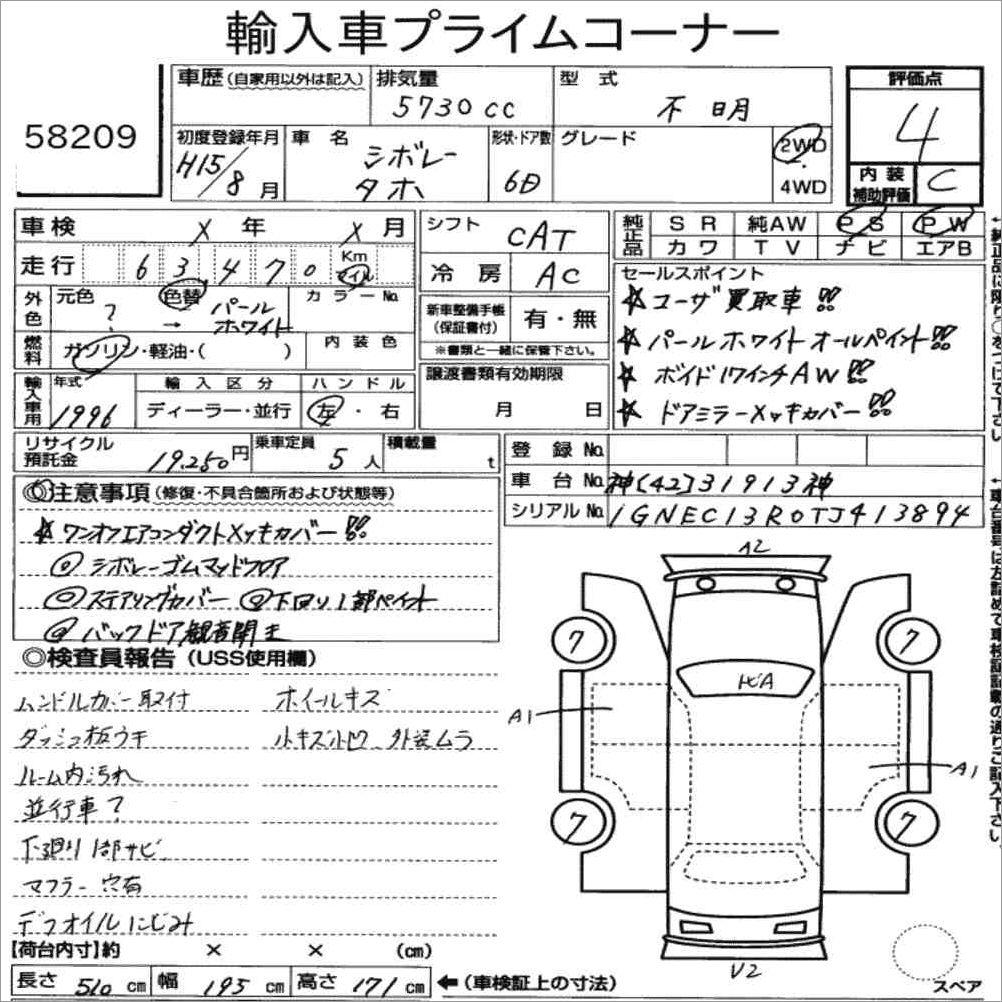 輸入車プライムコーナー
58209
車歴(自家用以外は記入)
排気量 5730cc
型式 不明
評価点 4
内装補助評価 C
初度登録年月 H15/8月
車名 シボレータホ
形状・ドア数 6D
グレード
2WD・4WD
車検 X年 X月
走行 63470 Km マイル
シフト CAT
冷房 AC
純正品 SR 純AW PS PW
カワ TV ナビ エアB
外色 元色 ? → 色替 パールホワイト
カラーNo.
燃料 ガソリン・軽油・( )
内装色
新車整備手帳(保証書付) 有・無
※書類と一緒に保管下さい。
セールスポイント
☆ユーザ買取車!!
☆パールホワイトオールペイント!!
☆ボイド17インチAW!!
☆ドアミラーメッキカバー!!
輸入車用 年式 1996
輸入区分 ディーラー・並行
ハンドル 左・右
譲渡書類有効期限 月 日
リサイクル預託金 19.250円
乗車定員 5人
積載量 t
登録No.
車台No. 神[42]31913神
シリアルNo. 1GNEC13R0TJ413894
◎注意事項(修復・不具合箇所および状態等)
☆ワンオフエアコンダクトメッキカバー!!
◎シボレーゴムマッドフロア
◎ステアリングカバー ◎下回り1部ペイント
◎バックドア観音開き
◎検査員報告(USS使用欄)
ハンドルカバー取付 ホイールキズ
ダッシュ板ウキ 小キズ小凹 外装ムラ
ルーム内汚れ
並行車?
下廻り1部サビ
マフラー穴有
デフオイルにじみ
【荷台内寸】約 × × (cm)
長さ 510cm 幅 195cm 高さ 171cm ←(車検証上の寸法)
A2
7
7
トビA
A1
A1
7
7
V2
スペア
←純正品に限り○をつけて下さい。
←車台番号は左詰めで車検証記載の通りご記入下さい。